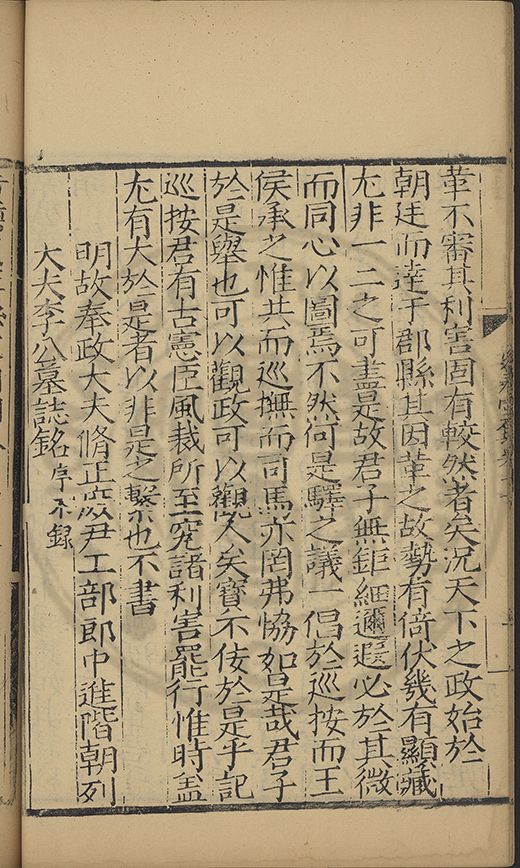 革不審其利害固有較然者矣況天下之政始於
朝廷而達于郡縣其因革之故勢有倚伏幾有顯藏
尤非一二之可盡是故君子無鉅細邇遐必於其微
而同心以圖焉不然何是驛之議一倡於巡按而王
侯承之惟共而巡撫而司馬亦罔弗協如是哉君子
於是舉也可以觀政可以觀人矣寳不佞於是乎記
巡按君有古憲臣風裁所至究諸利害罷行惟時盖
尤有大於是者以非是之繫也不書
明故奉政大夫脩正庶尹工部郎中進階朝列
大夫李公墓誌銘序不録